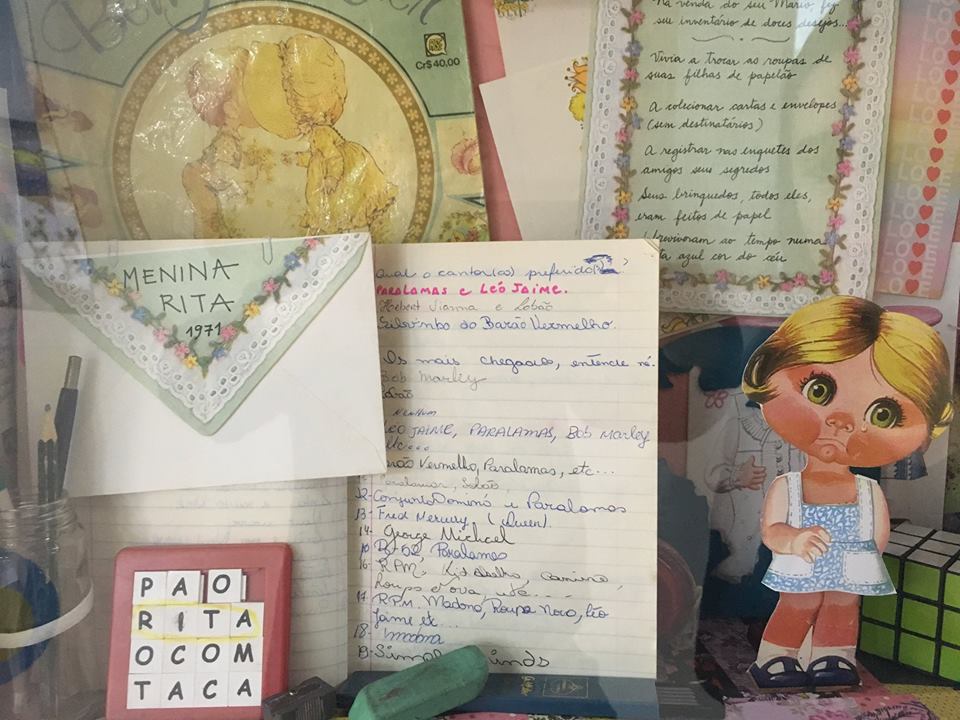 Cr$ 40,00
Na venda do seu Mario fez
seu inventário de doces desejos...
Vivia a trocar as roupas de
suas filhas de papelão
A colecionar cartas e envelopes
(sem destinatários)
A registrar nas enquetes dos
amigos seus segredos
Seus brinquedos, todos eles,
eram feitos de papel
ao tempo numa
azul cor do céu
MENINA
RITA
1971
Qual o cantor(es) preferido
PARALAMAS e LEÓ JAIME.
Herbert Vianna e Lobão
do Barão Vermelho.
Os mais chegado, entende né.
Bob Marley
Nenhum
LEO JAIME, PARALAMAS, Bob Marley
etc...
Vermelho, Paralamas, etc...
12- Conjunto Dominó e Paralamas
13- Fred Mercury (Queen)
14- George Michael
Paralamas
16- RPM,
17- R.P.M. Madona, Roupa Novo, Léo
Jaime etc...
18-
19- Simple Minds
PAO
RITA
OCOM
TACA